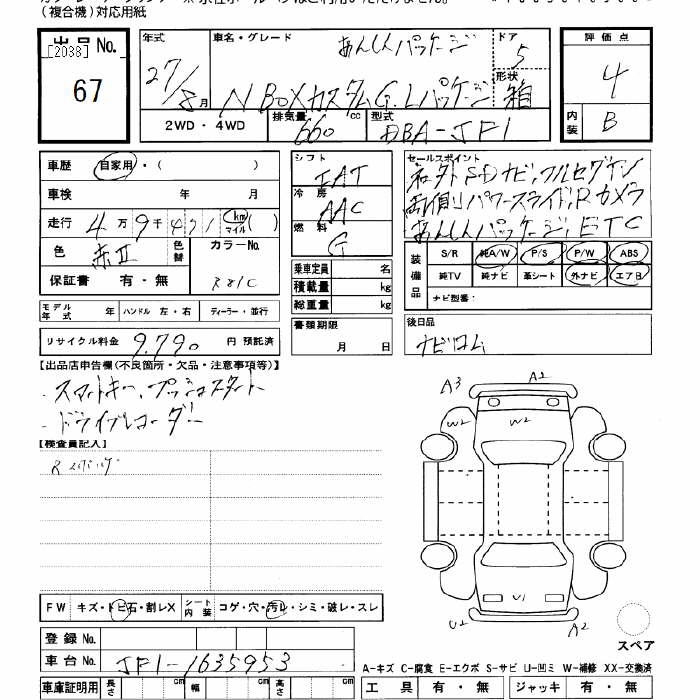 (複合機)対応用紙
出品No.
[2038]
67
年式
27/8月
車名・グレード
あんしんパッケージ
N BOXカスタムG.Lパッケージ
ドア
5
形状
箱
評価点
4
内装
B
2WD・4WD
排気量
660 cc
型式
DBA-JF1
車歴 自家用・( )
車検 年 月
走行 4万9千431 (km マイル)( )
色 赤II
色替
カラーNo.
R81C
保証書 有・無
シフト
IAT
冷房
AAC
燃料
G
乗車定員 名
積載量 kg
総重量 kg
セールスポイント
ネ外SDナビ,フルセグTV
両側パワースライド,Rカメラ
あんしんパッケージ,ETC
装備品
S/R 純A/W P/S P/W ABS
純TV 純ナビ 革シート 外ナビ エアB
ナビ型番:
モデル年式 年 ハンドル 左・右 ディーラー・並行
リサイクル料金 9.790 円 預託済
書類期限
月 日
後日品
ナビロム
【出品店申告欄(不良箇所・欠品・注意事項等)】
・スマートキー,プッシュスタート
・ドライブレコーダー
【検査員記入】
A3
A2
W2
W2
U1
U2
A2
スペア
FW キズ・トビ石・割レX シート内装 コゲ・穴・汚レ・シミ・破レ・スレ
登録No.
車台No. JF1-1635953
車庫証明用 長さ cm 幅 cm 高さ cm
A-キズ C-腐食 E-エクボ S-サビ U-凹ミ W-補修 XX-交換済
工具 有・無 ジャッキ 有・無